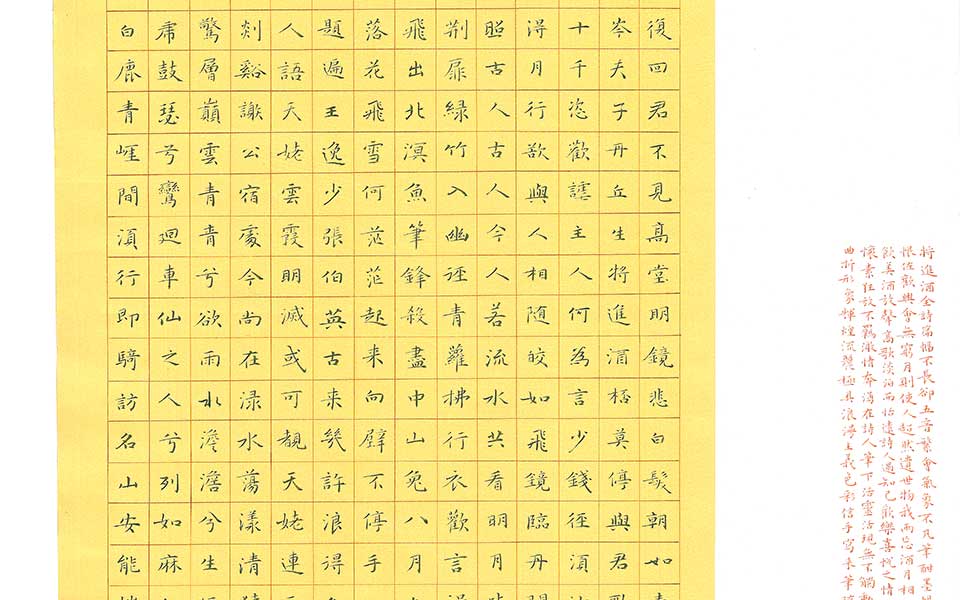 復回君不見高堂明鏡悲白髮朝如
岑夫子丹丘生將進酒杯莫停與君
十千恣歡謔主人何為言少錢徑須
得月行卻與人相隨皎如飛鏡臨丹
照古人古人今人若流水共看明月
荊扉綠竹入幽徑青蘿拂行衣歡言
飛出北溟魚筆鋒殺盡中山兔八月
落花飛雪何茫茫起來向壁不停手
題遍王逸少張伯英古來幾許浪得
人語天姥雲霞明滅或可覩天姥連
剡谿謝公宿處今尚在淥水蕩漾清
驚層巔雲青青兮欲雨水澹澹兮生
虎鼓瑟兮鸞迴車仙之人兮列如麻
白鹿青崖間須行即騎訪名山安能
將進酒全詩篇幅不長卻五音繁會氣象不凡筆酣墨
恨佐歡與會無窮月則使人超然遺世物我而忘酒月相
飲美酒放聲高歌淡泊而怡遠詩人遇知己歡樂喜悅之情
懷素狂放不羈激情奔湧在詩人筆下活靈活現無不觸動
曲折形象輝煌極具浪漫主義色彩信手寫來筆